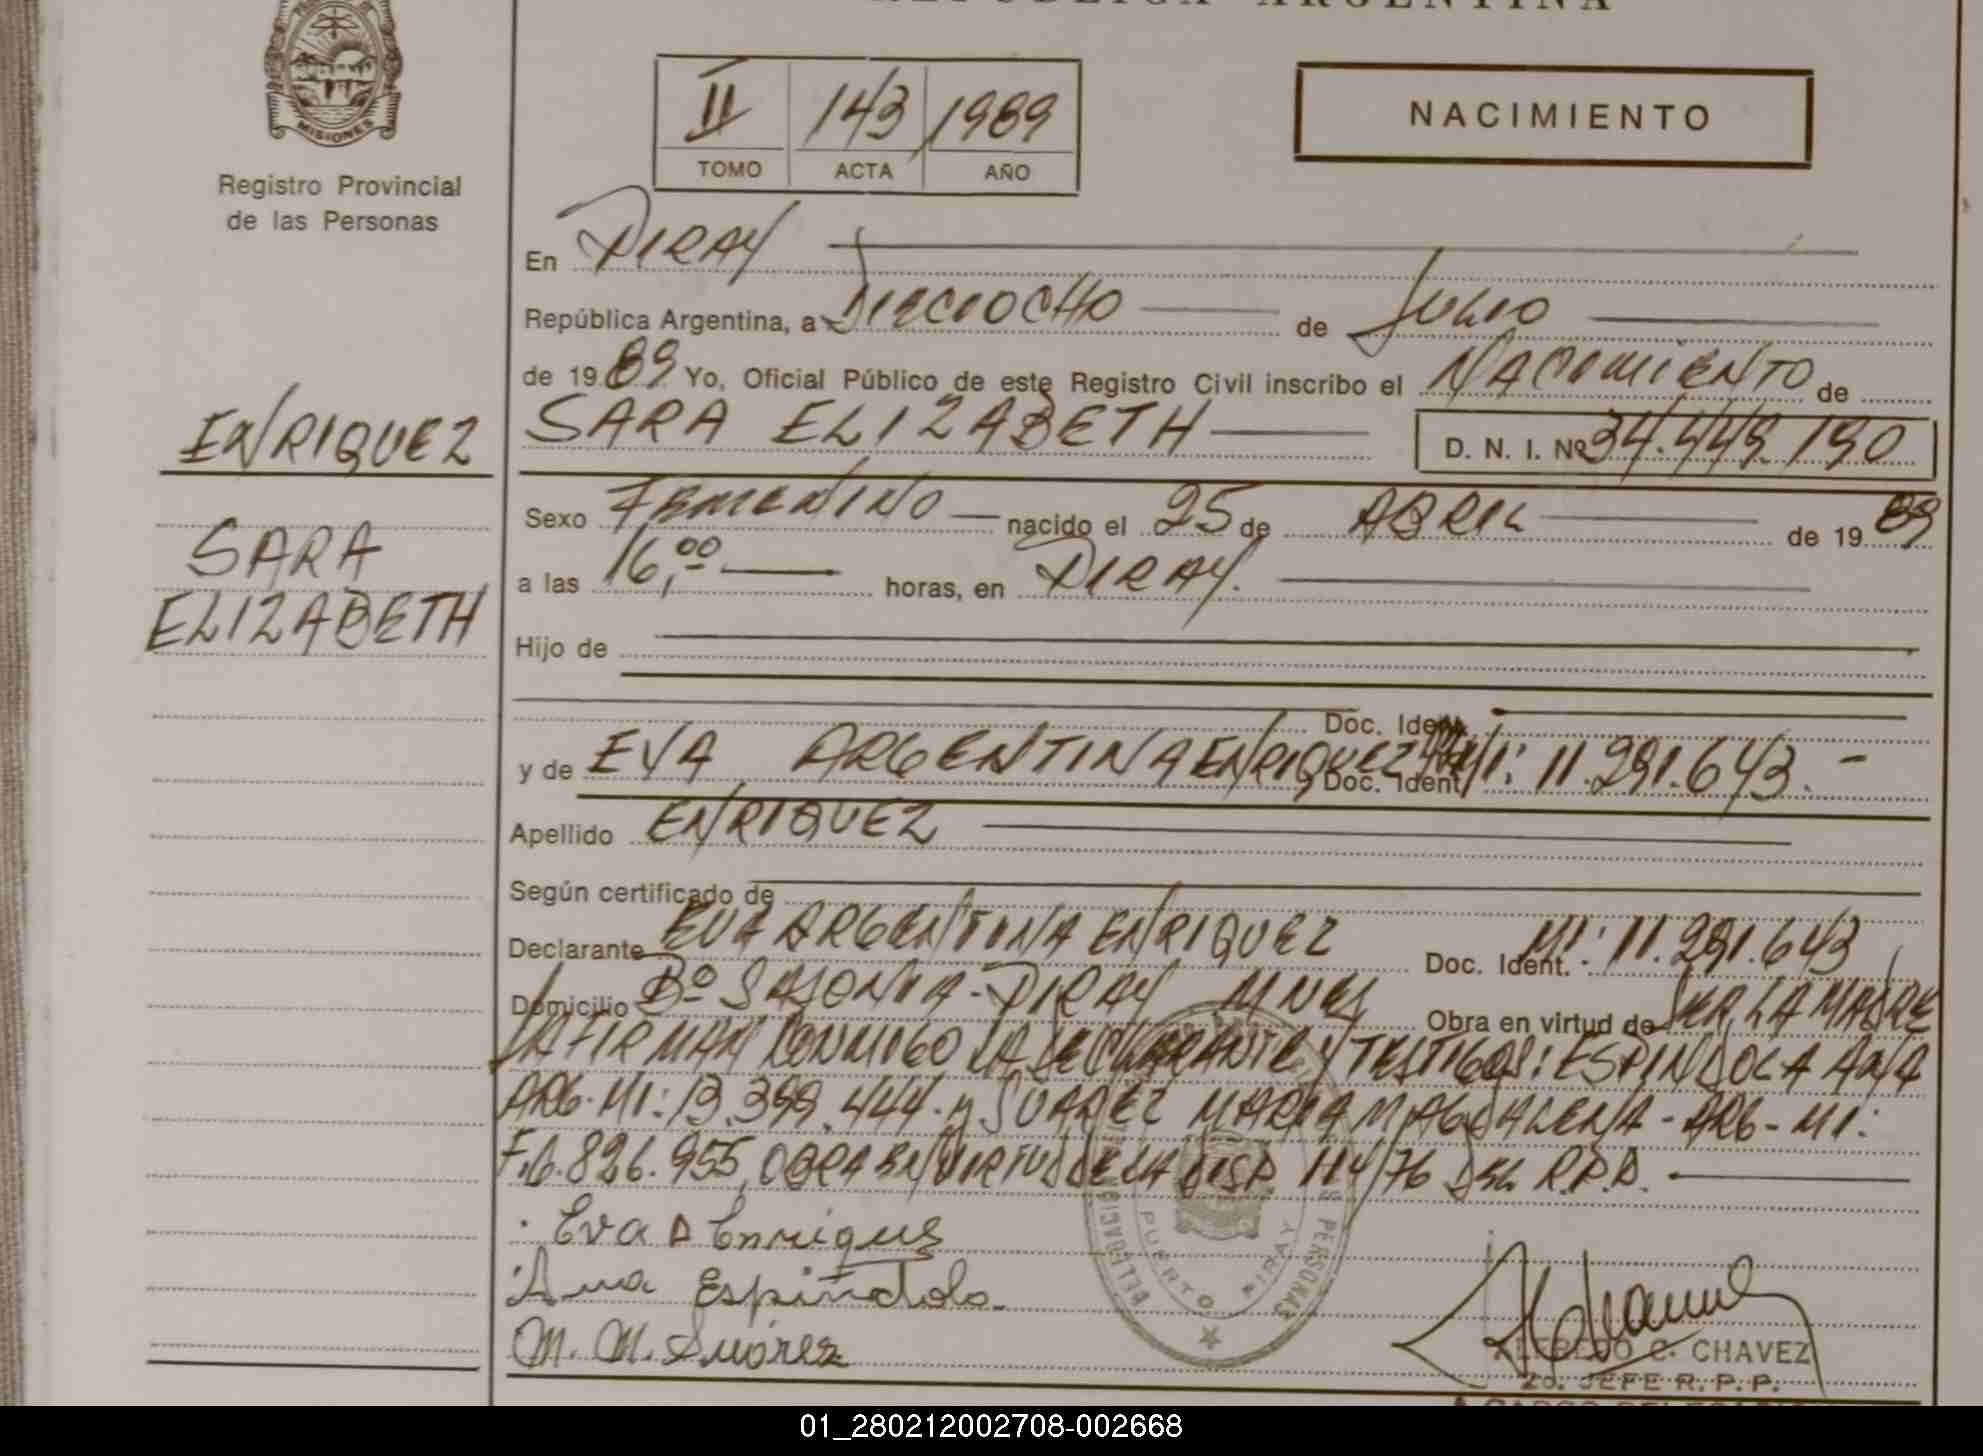 REPUBLICA ARGENTINA
MISIONES
Registro Provincial
de las Personas
II 143 1989
TOMO ACTA AÑO
NACIMIENTO
En PIRAY
República Argentina, a DIECIOCHO de JULIO
de 19 89 Yo, Oficial Público de este Registro Civil inscribo el NACIMIENTO de
ENRIQUEZ
SARA ELIZABETH D. N. I. Nº 34.449.190
SARA
ELIZABETH
Sexo FEMENINO nacido el 25 de ABRIL de 19 89
a las 16,00 horas, en PIRAY.
Hijo de
Doc. Ident.
y de EVA ARGENTINA ENRIQUEZ Doc. Ident. MI: 11.291.643.-
Apellido ENRIQUEZ
Según certificado de
Declarante EVA ARGENTINA ENRIQUEZ Doc. Ident. MI: 11.291.643
Domicilio Bº SAJONIA - PIRAY MNES Obra en virtud de SER LA MADRE
FIRMAN CONMIGO LA DECLARANTE Y TESTIGOS: ESPINDOLA ANA
ARG. MI: 13.399.444. y SUAREZ MARIA MAGDALENA - ARG - MI:
F.6.826.955, OBRA EN VIRTUD DE LA DISP. 114/76 DEL R.P.P.
Eva A Enriquez
Ana Espíndola
M. M. Suárez
DELEGACION
PERSONAS
PUERTO PIRAY
ALFREDO C. CHAVEZ
2o. JEFE R. P. P.
01_280212002708-002668